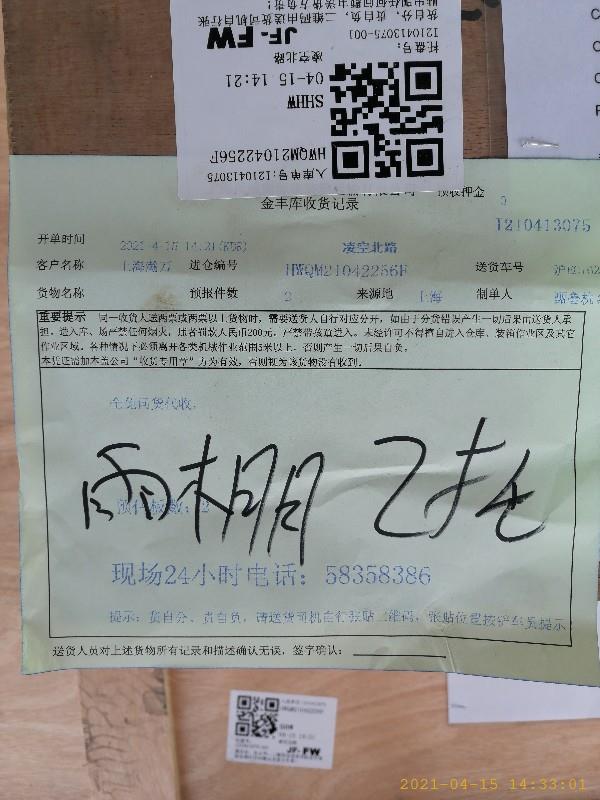 贴中出现任何问题由送货司机自行负责!
货自分,责自负,二维码由送货司机自行张
JF-FW
托盘号:
I210413075-001
凌空北路
04-15 14:21
SHHW
HWQM21042256F
入库单号:I210413075
预收押金 0
金丰库收货记录
I210413075
开单时间 2021-4-15 14:21 凌空北路
客户名称 进仓编号 HWQM21042256F 送货车号
货物名称 预报件数 2 来源地 上海 制单人
重要提示 同一收货人送两票或两票以上货物时,需要送货人自行对应分开,如由于分货错误产生一切后果由送货人承
担。进入库、场严禁任何烟火,违者罚款人民币200元,严禁带孩童进入。未经许可不得擅自进入仓库、装箱作业区及其它
作业区域。各种情况下必须离开各类机械作业范围5米以上,否则产生一切后果自负。
本凭证需加本盖公司“收货专用章”方为有效,否则视为该货物没有收到。
雨棚
预付板数:2
现场24小时电话:58358386
提示:货自分、责自负,请送货司机自行张贴二维码,张贴位置按铲车员提示
送货人员对上述货物所有记录和描述确认无误,签字确认:
HWQM21042256F
JF-FW
2021-04-15 14:33:01